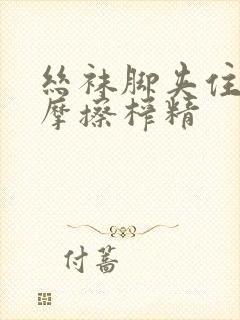 丝袜脚夹住
摩擦榨精
付蔷